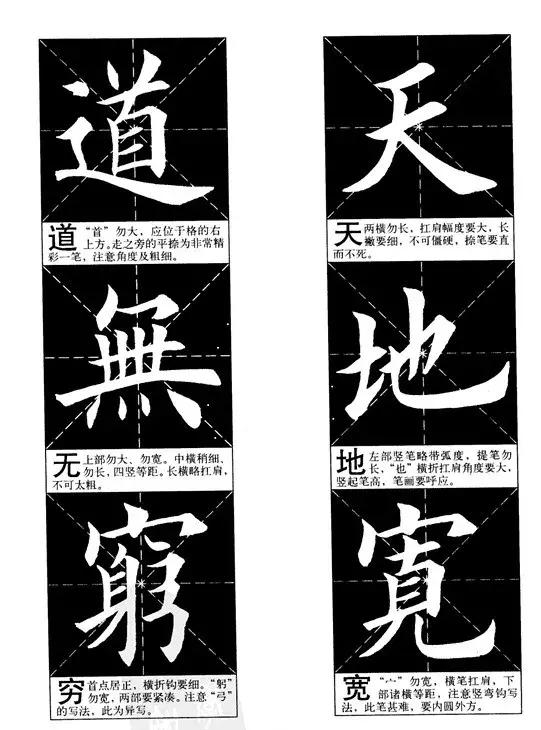 天
天 两横勿长，扛肩幅度要大，长
撇要细，不可僵硬，捺笔要直
而不死。
地
地 左部竖笔略带弧度，提笔勿
长，“也”横折扛肩角度要大，
竖起笔高，笔画要呼应。
寛
宽 “宀”勿宽，横笔扛肩，下
部诸横等距，注意竖弯钩写
法，此笔甚难，要内圆外方。
道
道 “首”勿大，应位于格的右
上方。走之旁的平捺为非常精
彩一笔，注意角度及粗细。
無
无 上部勿大、勿宽。中横稍细、
勿长，四竖等距。长横略扛肩，
不可太粗。
窮
穷 首点居正，横折钩要细。“躬”
勿宽，两部要紧凑。注意“弓”
的写法，此为异写。